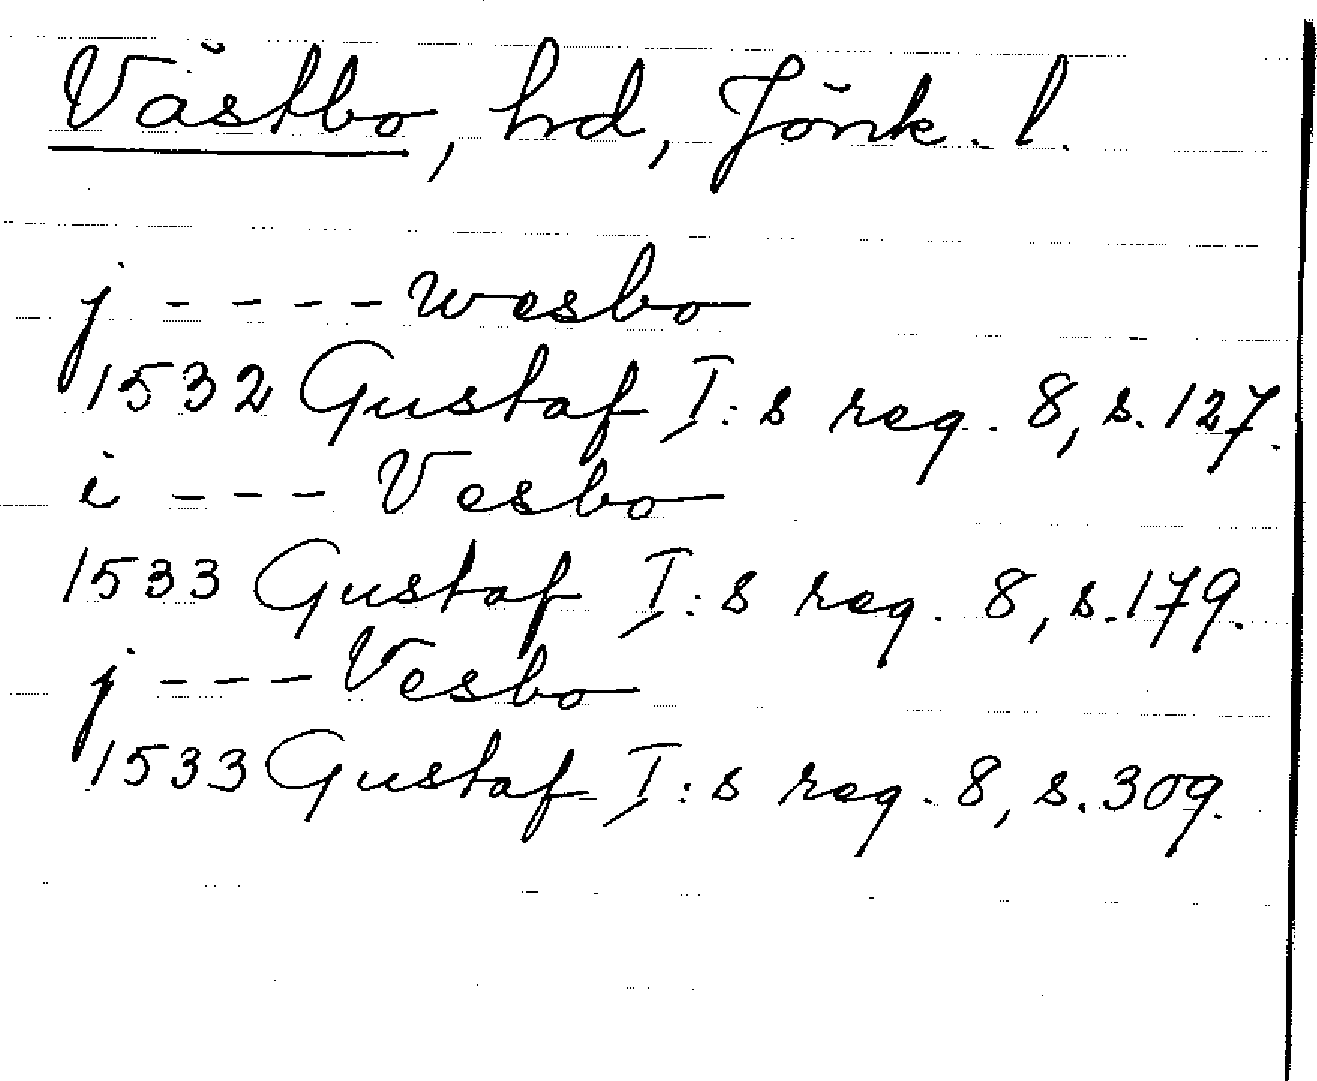 Västbo, hd, Jönk. l.
j - - - - wesbo
1532 Gustaf I:s reg. 8, s. 127.
i - - - Vesbo
1533 Gustaf I:s reg. 8, s. 179.
j - - - Vesbo
1533 Gustaf I:s reg. 8, s. 309.